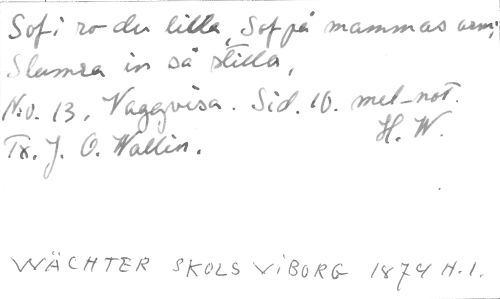 Sof i ro du lilla, Sof på mammas arm;
Slumra in så stilla,
N:o. 13. Vaggvisa. Sid. 10. mel-not.
Tx. J. O. Wallin. H. W.
WÄCHTER SKOLS VIBORG 1874 H.1.